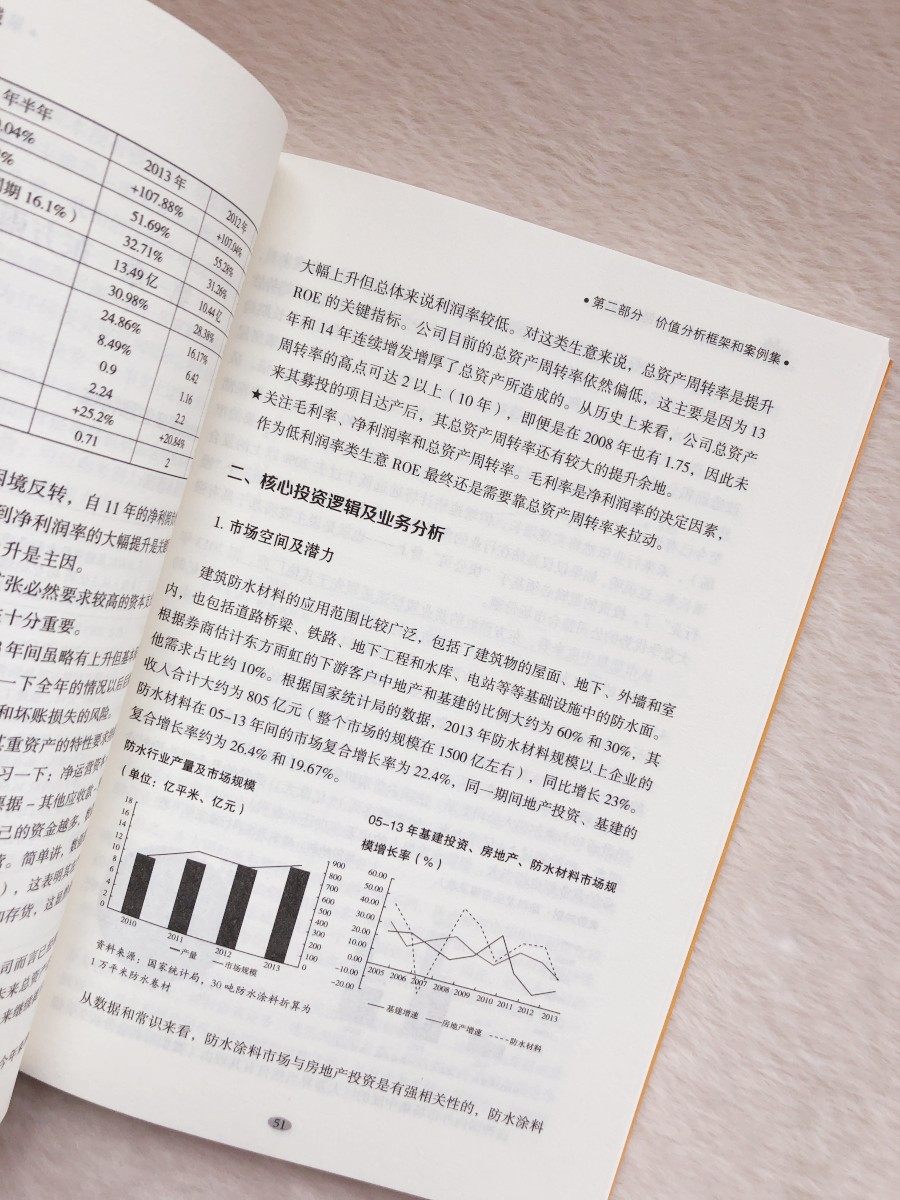 年半年
2013年
2012年
.04%
+107.88%
+107.04%
%
51.69%
55.28%
期 16.1%）
32.71%
31.26%
13.49 亿
10.44 亿
30.98%
28.38%
24.86%
16.17%
8.49%
6.42
0.9
1.16
2.24
2.2
+25.2%
+20.84%
0.71
2
困境反转，自 11 年的净利润
到净利润率的大幅提升是
升是主因。
张必然要求较高的资本
十分重要。
年间虽略有上升但基本
一下全年的情况以后
和坏账损失的风险。
重资产的特性要求
习一下：净运营资
票据－其他应收款
己的资金越多，
营。简单讲，数据
），这表明其
和存货，这
司而言已
未来总资产
来继续
•第二部分 价值分析框架和案例集•
大幅上升但总体来说利润率较低。对这类生意来说，总资产周转率是提升
ROE 的关键指标。公司目前的总资产周转率依然偏低，这主要是因为 13
年和 14 年连续增发增厚了总资产所造成的。从历史上来看，公司总资产
周转率的高点可达 2 以上（10 年），即便是在 2008 年也有 1.75，因此未
来其募投的项目达产后，其总资产周转率还有较大的提升余地。
★关注毛利率、净利润率和总资产周转率。毛利率是净利润率的决定因素，
作为低利润率类生意 ROE 最终还是需要靠总资产周转率来拉动。
二、核心投资逻辑及业务分析
1. 市场空间及潜力
建筑防水材料的应用范围比较广泛，包括了建筑物的屋面、地下、外墙和室
内，也包括道路桥梁、铁路、地下工程和水库、电站等等基础设施中的防水面。
根据券商估计东方雨虹的下游客户中地产和基建的比例大约为 60% 和 30%，其
他需求占比约 10%。根据国家统计局的数据，2013 年防水材料规模以上企业的
收入合计大约为 805 亿元（整个市场的规模在 1500 亿左右），同比增长 23%。
防水材料在 05-13 年间的市场复合增长率为 22.4%，同一期间地产投资、基建的
复合增长率约为 26.4% 和 19.67%。
防水行业产量及市场规模
（单位：亿平米、亿元）
18
16
14
12
10
8
6
4
2
0
900
800
700
600
500
400
300
200
100
0
2010
2011
2012
2013
产量
市场规模
资料来源：国家统计局，30 吨防水涂料折算为
1 万平米防水卷材
05-13 年基建投资、房地产、防水材料市场规
模增长率（%）
60.00
50.00
40.00
30.00
20.00
10.00
0.00
-10.00
-20.00
2005 2006 2007 2008 2009 2010 2011 2012 2013
基建增速
房地产增速
防水材料
从数据和常识来看，防水涂料市场与房地产投资是有强相关性的，防水涂料
51